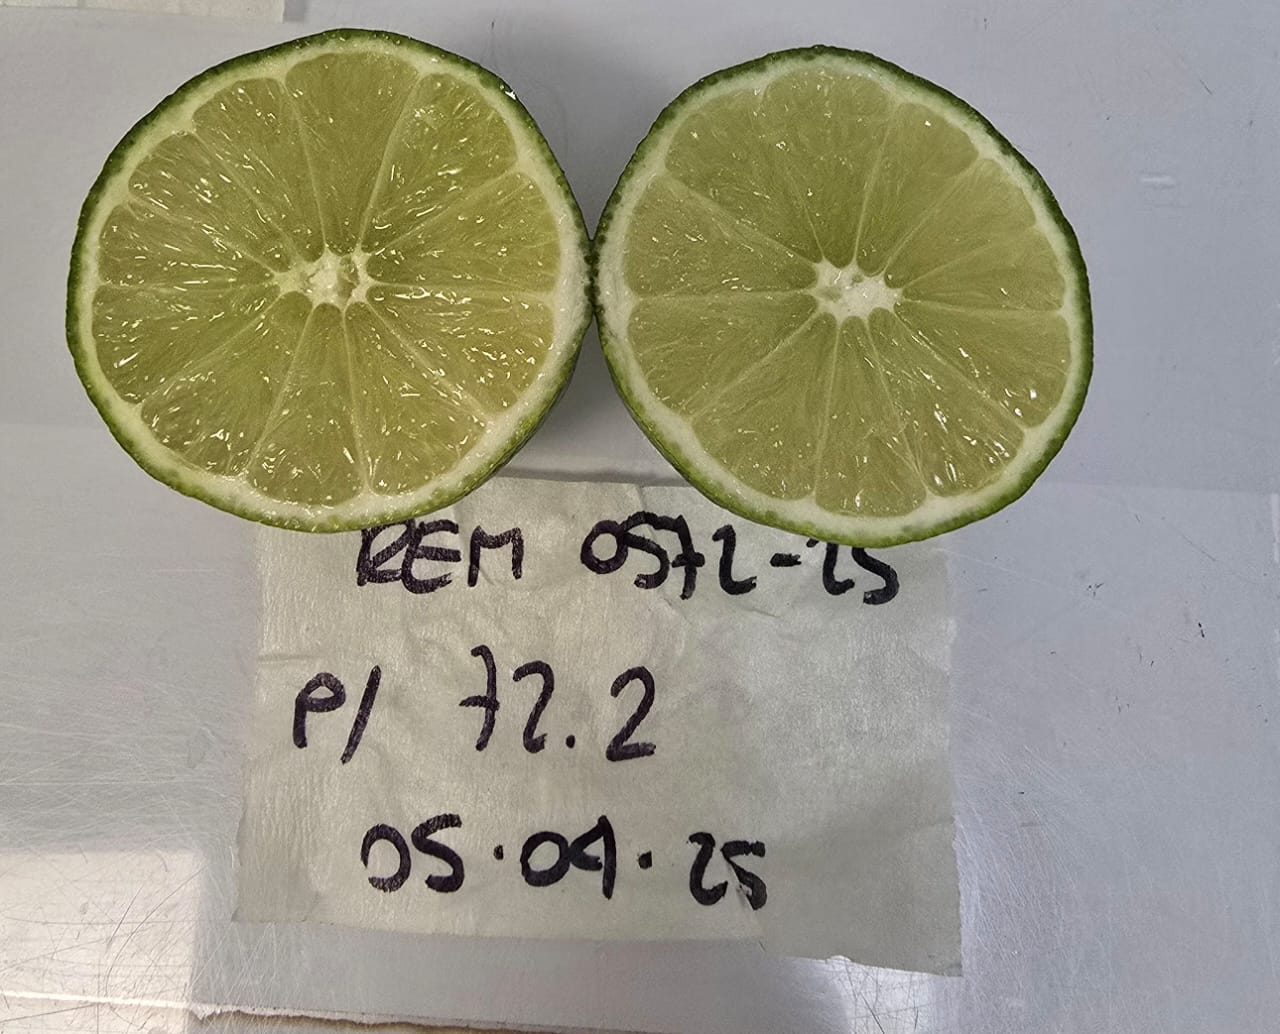 REM 0572-25
P/ 72.2
05.09.25